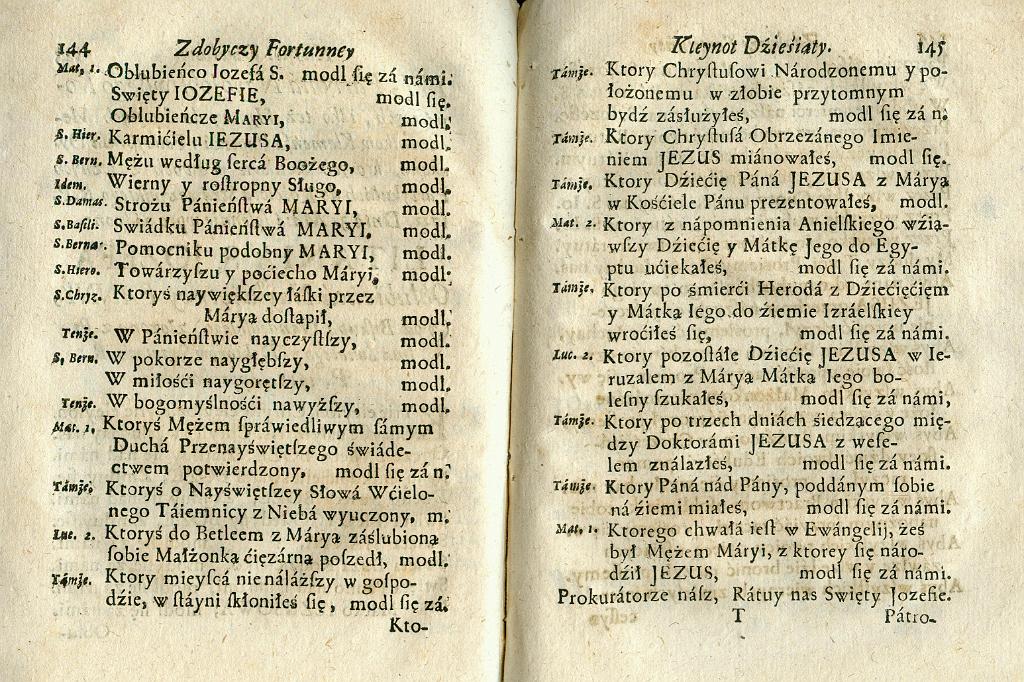 144 Zdobyczy Fortunney
Mat. 1. Oblubieńco Iozefá S. modl ſię zá námi.
Swięty IOZEFIE, modl ſię.
Oblubieńcze MARYI, modl.
S. Hier. Karmićielu IEZUSA, modl.
S. Bern. Mężu według ſercá Boożego, modl.
Idem. Wierny y roſtropny Sługo, modl.
S. Damas. Strożu Pánieńſtwá MARYI, modl.
S. Baſili. Swiádku Pánieńſtwá MARYI, modl.
S. Berna. Pomocniku podobny MARYI, modl.
S. Hiero. Towárzyſzu y poćiecho Máryi, modl.
S. Chryz. Ktoryś naywiększey łáſki przez
Márya doſtąpił, modl.
Tenże. W Pánieńſtwie nayczyſtſzy, modl.
S. Bern. W pokorze naygłębſzy, modl.
W miłośći naygorętſzy, modl.
Tenże. W bogomyślnośći nawyżſzy, modl.
Mat. 1. Ktoryś Mężem ſpráwiedliwym ſámym
Duchá Przenayświętſzego świáde-
ctwem potwierdzony, modl ſię zá n.
Támże. Ktoryś o Nayświętſzey Słowá Wćielo-
nego Táiemnicy z Niebá wyuczony, m.
Luc. 2. Ktoryś do Betleem z Márya záślubioną
ſobie Małżonką ćięzárna poſzedł, modl.
Támże. Ktory mieyſcá nie náláżſzy w goſpo-
dźie, w ſtáyni ſkłoniłeś ſię, modl ſię zá.
Kto-
Kleynot Dźieśiąty. 145
Támże. Ktory Chryſtuſowi Národzonemu y po-
łożonemu w złobie przytomnym
bydź záſłużyłeś, modl ſię zá n.
Támże. Ktory Chryſtuſá Obrzezánego Imie-
niem JEZUS miánowałeś, modl ſię.
Támże. Ktory Dźiećię Páná JEZUSA z Márya
w Kośćiele Pánu prezentowałeś, modl.
Mat. 2. Ktory z nápomnienia Anielſkiego wźią-
wſzy Dźiećię y Mátkę Jego do Egy-
ptu ućiekałeś, modl ſię zá námi.
Támże. Ktory po śmierći Herodá z Dźiećięćiem
y Mátka Iego do źiemie Izráelſkiey
wroćiłeś ſię, modl ſię zá námi.
Luc. 2. Ktory pozoſtáłe Dźiećię JEZUSA w Ie-
ruzalem z Márya Mátka Iego bo-
leſny ſzukałeś, modl ſię zá námi,
Támże. Ktory po trzech dniách śiedzącego mię-
dzy Doktorámi JEZUSA z weſe-
lem ználazłeś, modl ſię zá námi.
Támże. Ktory Páná nád Pány, poddánym ſobie
ná źiemi miałeś, modl ſię zá námi.
Mat. 1. Ktorego chwałá ieſt w Ewángelij, żeś
był Mężem Máryi, z ktorey ſię náro-
dźił JEZUS, modl ſię zá námi.
Prokurátorze nász, Rátuy nas Swięty Jozefie.
T Pátro-